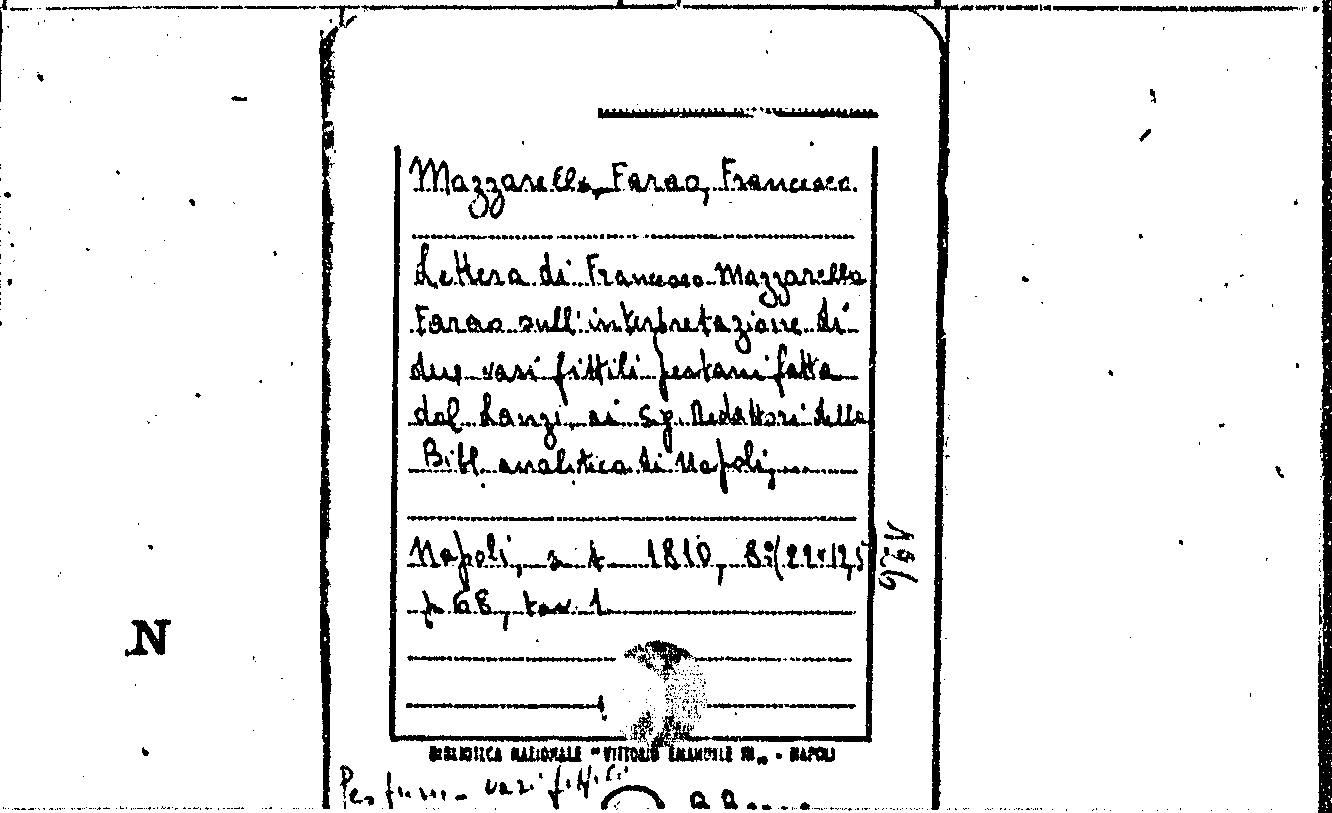 Mazzarella, Farao, Francesco.
Lettera di Francesco Mazzarella
Farao sull'interpretazione di
due vasi fittili pestani fatta
dal Lanzi, ai Sig. Redattori della
Bibl. analitica di Napoli,
Napoli, s t 1810, 8°(22x12,5
p 68, tav 1
BIBLIOTECA NAZIONALE "VITTORIO EMANUELE III„ - NAPOLI
vasi fittili
N